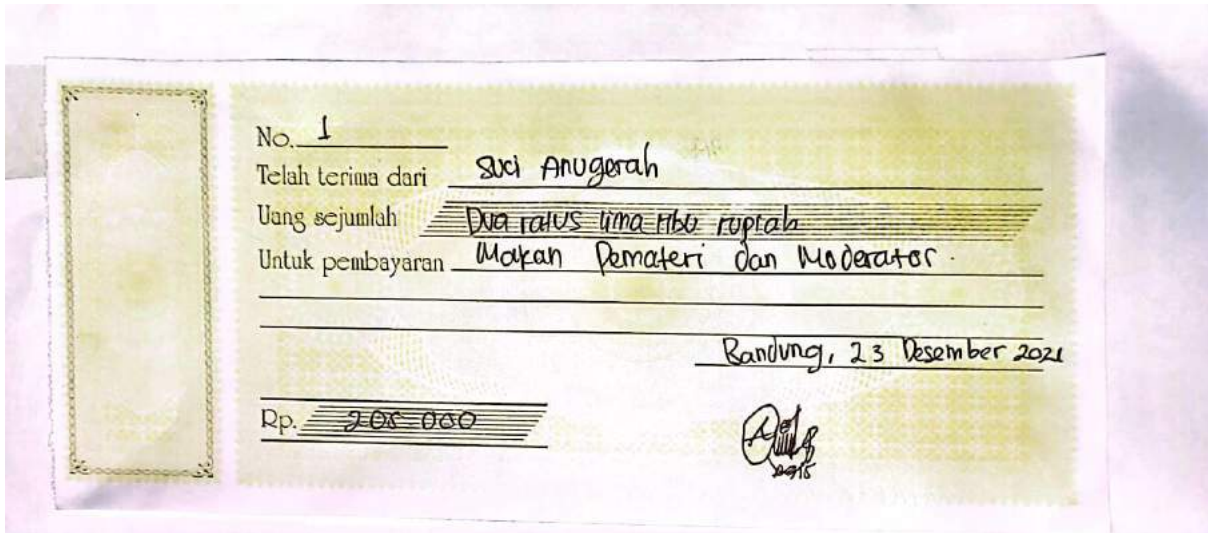 No. 1
Telah terima dari Suci Anugerah
Uang sejumlah Dua ratus lima ribu rupiah
Untuk pembayaran Makan Pemateri dan Moderator.
Bandung, 23 Desember 2021
Rp. 205.000